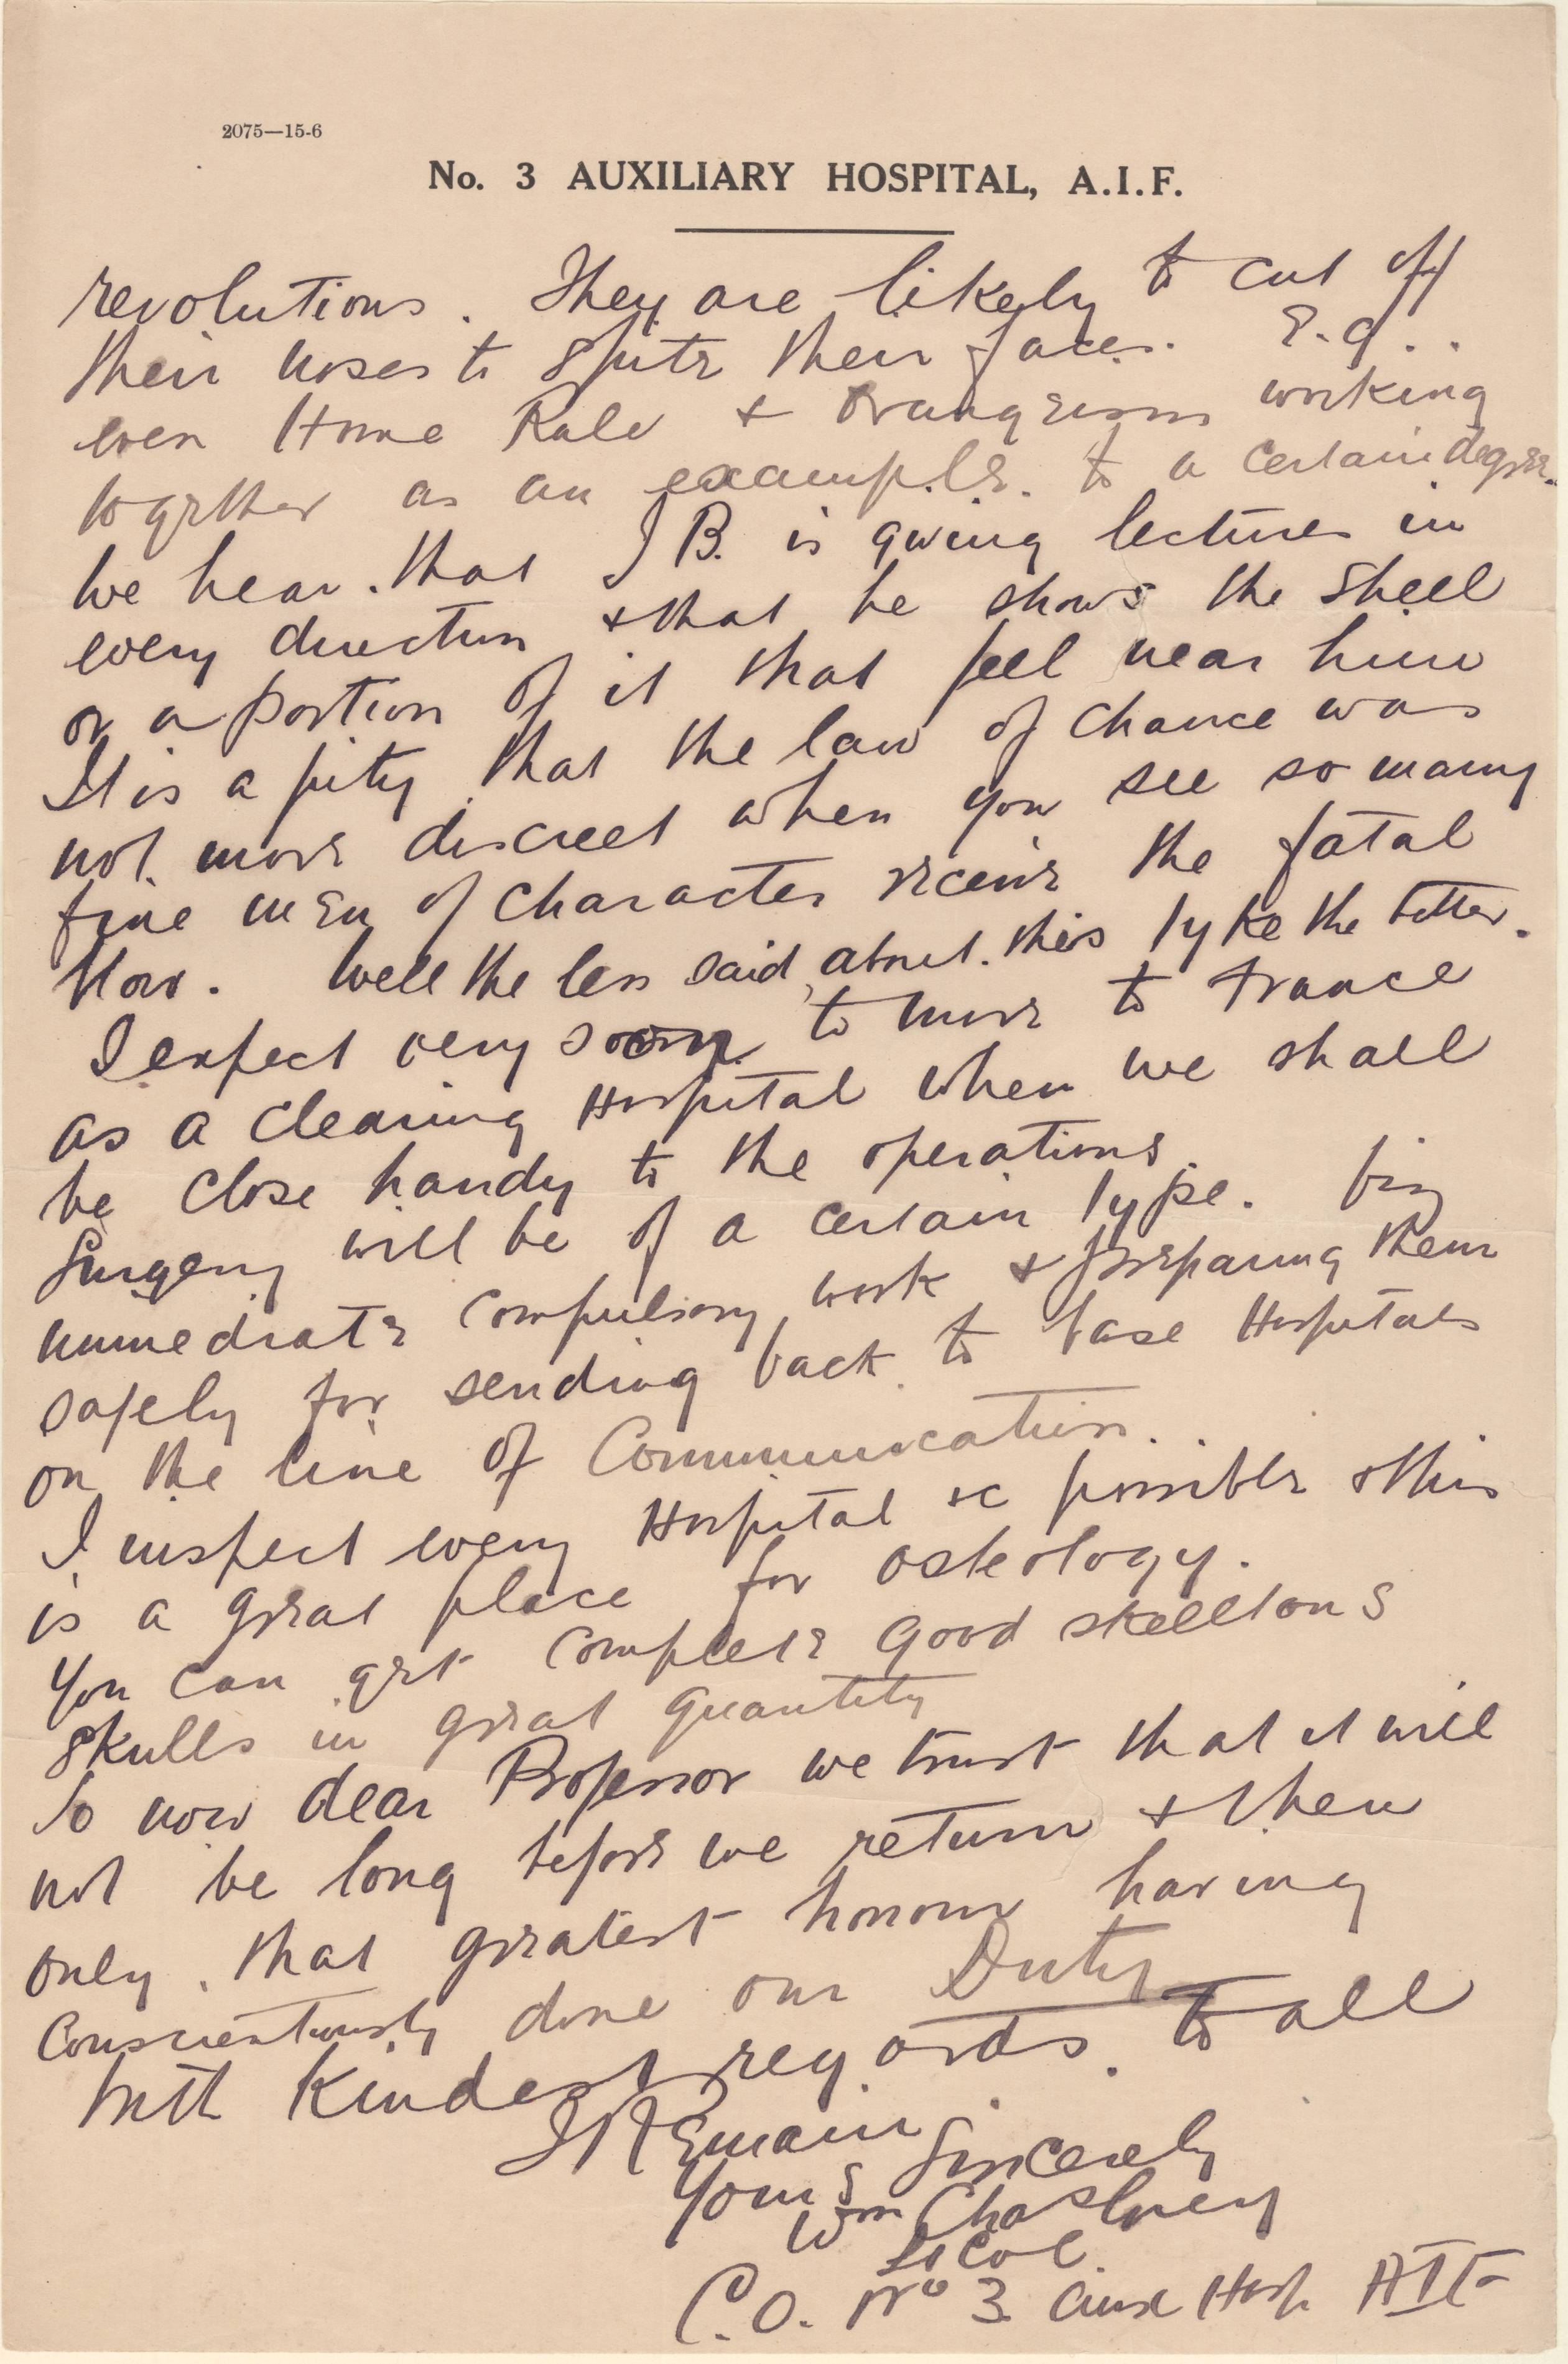 2075—15-6
No. 3 AUXILIARY HOSPITAL, A.I.F.
revolutions. They are likely to cut off
their noses to spite their faces. E.g..
even Home Rule & Orangeism working
together as an example. to a certain degree.
We hear. that J B. is giving lectures in
every direction & that he shows the shell
or a portion of it that fell near him
It is a pity that the law of chance was
not more discreet when you see so many
fine men of character receive the fatal
blow. Well the less said about this tyke the better.
I expect very soon to move to France
as a clearing Hospital when we shall
be close handy to the operations.
Surgery will be of a certain type. big
immediate compulsory work & preparing them
safely for sending back to base Hospitals
on the line of Communication.
I inspect every Hospital &c possible & this
is a great place for osteology.
You can get complete good skelltons
skulls in great quantity
So now dear Professor we trust that it will
not be long before we return & then
only that greatest honour having
conscientiously done our Duty
With Kindest regards to all
I Remain
Yours Sincerely
Wm Chas
Lt Col.
C.O. No 3 Aux Hosp AIF